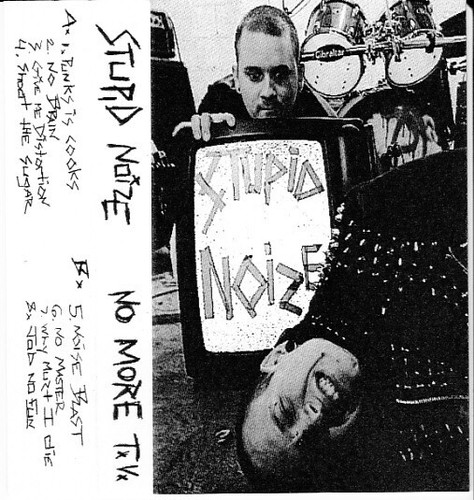 STUPID NOIZE
NO MORE TxVx
Ax 1. PUNKS IS COOKS
2. NO BRAIN
3. GIVE ME DISTORTION
4. SHOOT THE SUGAR
Bx 5. NOISE BLAST
6. NO MASTER
7. WHY MURT I DIE
8. NO FUN
STUPID
NOIZE
Gibraltar